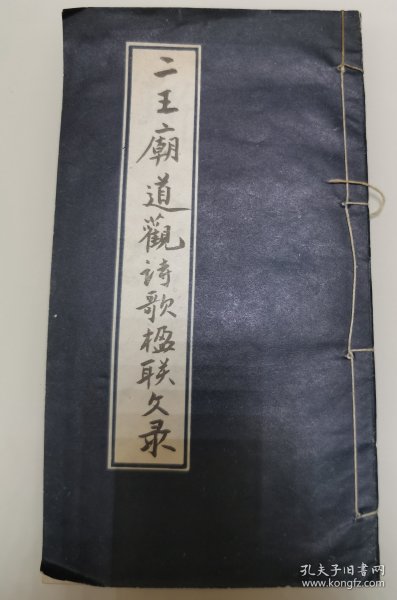 二王廟道觀詩歌楹联文录
孔夫子旧书网
www.kongfz.com